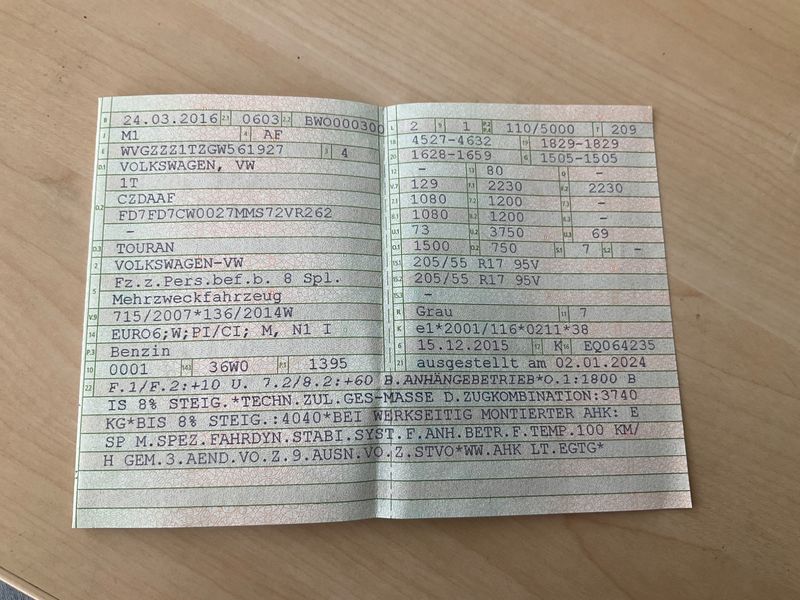 B 24.03.2016 2.1 0603 2.2 BW0000300
J M1 4 AF
E WVGZZZ1TZGW561927 3 4
D.1 VOLKSWAGEN, VW
1T
D.2 CZDAAF
FD7FD7CW0027MMS72VR262
-
D.3 TOURAN
2 VOLKSWAGEN-VW
5 Fz.z.Pers.bef.b. 8 Spl.
Mehrzweckfahrzeug
V.9 715/2007*136/2014W
14 EURO6;W;PI/CI; M, N1 I
P.3 Benzin
10 0001 14.1 36W0 P.1 1395
L 2 9 1 P.2 P.4 110/5000 T 209
18 4527-4632 19 1829-1829
20 1628-1659 G 1505-1505
12 - 13 80 Q -
V.7 129 F.1 2230 F.2 2230
7.1 1080 7.2 1200 7.3 -
8.1 1080 8.2 1200 8.3 -
U.1 73 U.2 3750 U.3 69
O.1 1500 O.2 750 S.1 7 S.2 -
15.1 205/55 R17 95V
15.2 205/55 R17 95V
15.3 -
R Grau 11 7
K e1*2001/116*0211*38
6 15.12.2015 17 K 16 EQ064235
21 ausgestellt am 02.01.2024
22 F.1/F.2:+10 U. 7.2/8.2:+60 B.ANHÄNGEBETRIEB*O.1:1800 B
IS 8% STEIG.*TECHN.ZUL.GES-MASSE D.ZUGKOMBINATION:3740
KG*BIS 8% STEIG.:4040*BEI WERKSEITIG MONTIERTER AHK: E
SP M.SPEZ.FAHRDYN.STABI.SYST.F.ANH.BETR.F.TEMP.100 KM/
H GEM.3.AEND.VO.Z.9.AUSN.VO.Z.STVO*WW.AHK LT.EGTG*